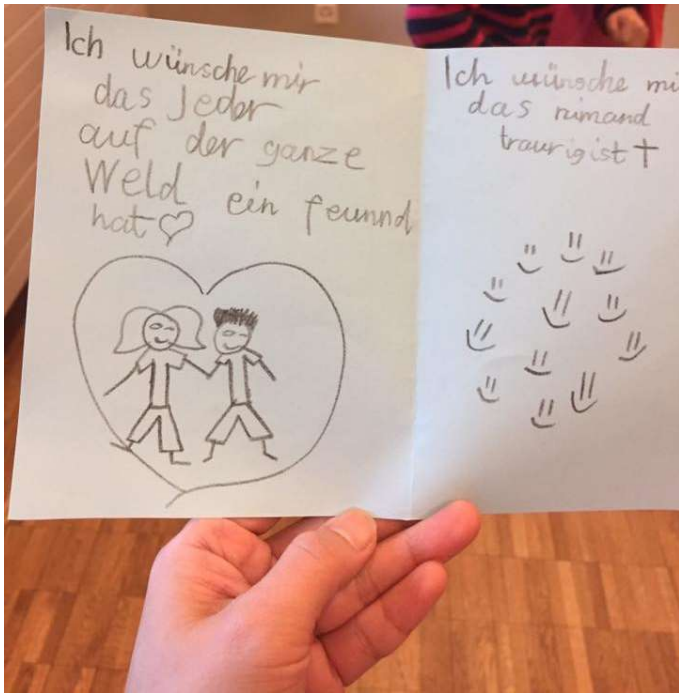 Ich wünsche mir
das Jeder
auf der ganze
Weld ein feunnd
hat
Ich wünsche mi
das nimand
traurig ist